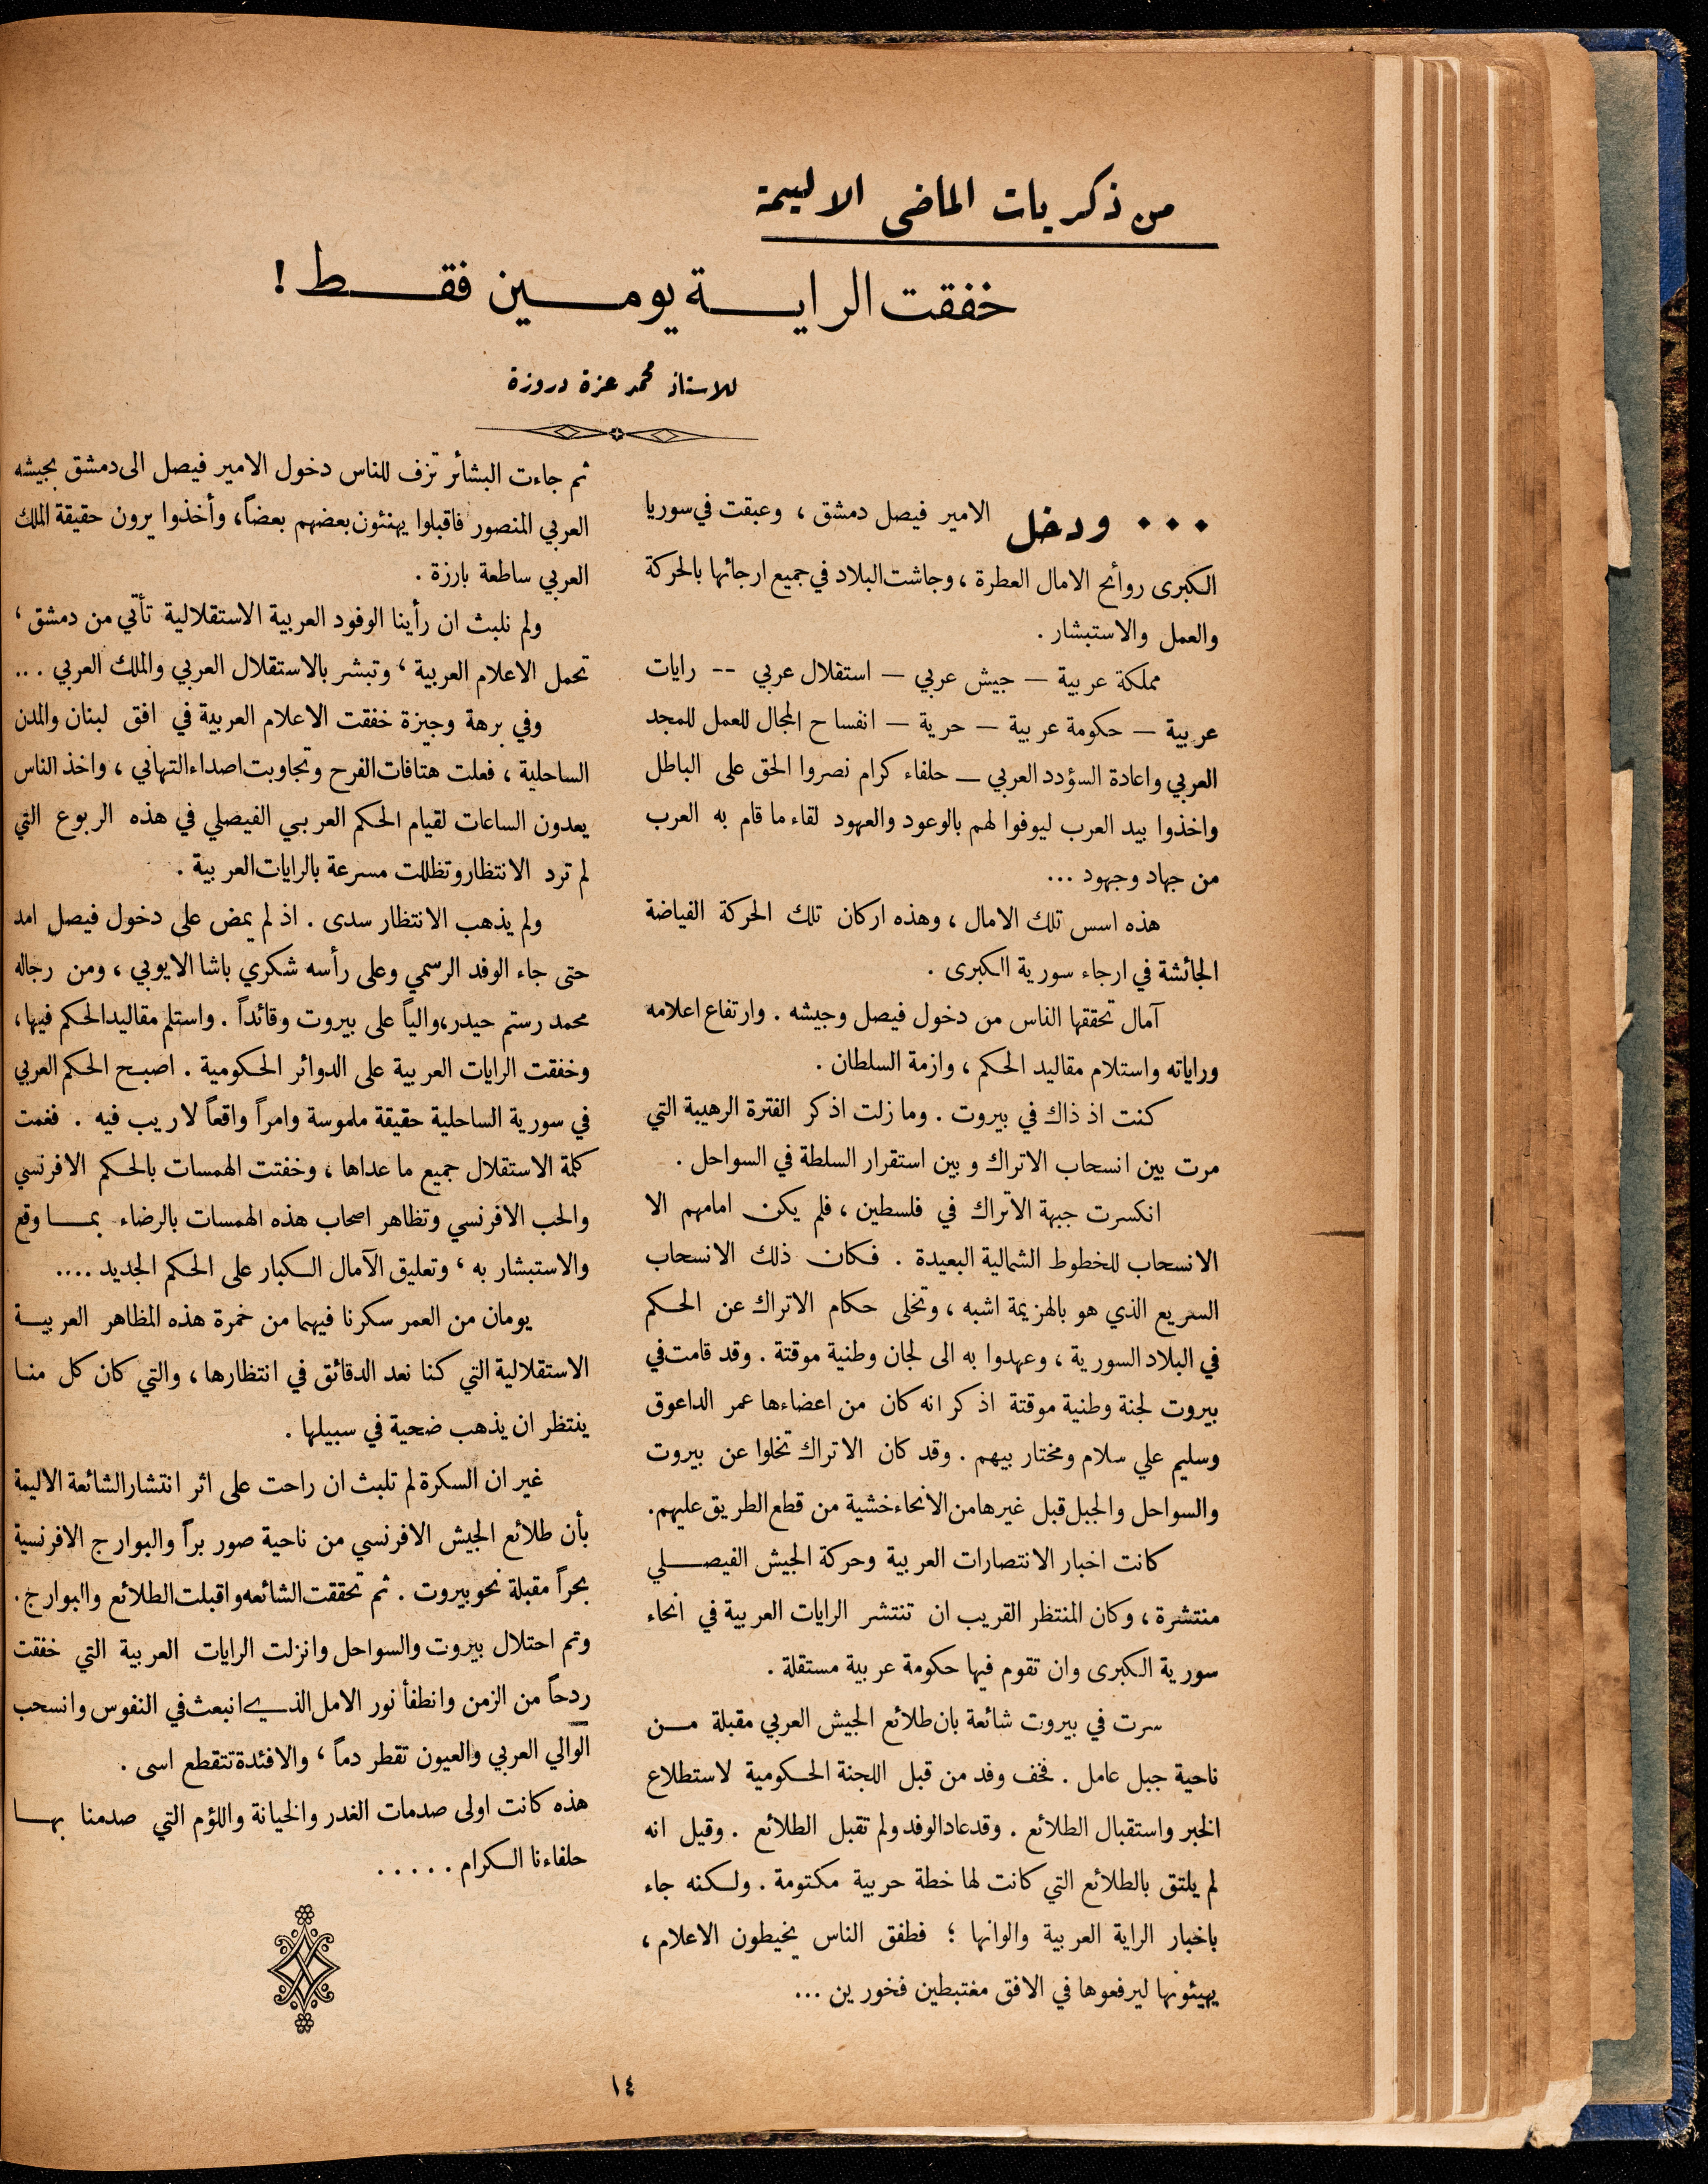 من ذكريات الماضي الاليمة
خفقت الراية يومين فقط !
للاستاذ محمد عزة دروزة
٠٠٠ ودخل الامير فيصل دمشق ، وعبقت في سوريا
الكبرى روائح الامال العطرة ، وجاشت البلاد في جميع ارجائها بالحركة
والعمل والاستبشار .
مملكة عربية — جيش عربي — استقلال عربي -- رايات
عربية — حكومة عربية — حرية — انفساح المجال للعمل للمجد
العربي واعادة السؤدد العربي — حلفاء كرام نصروا الحق على الباطل
واخذوا بيد العرب ليوفوا لهم بالوعود والعهود لقاء ما قام به العرب
من جهاد وجهود ...
هذه اسس تلك الامال ، وهذه اركان تلك الحركة الفياضة
الجائشة في ارجاء سورية الكبرى .
آمال تحققها الناس من دخول فيصل وجيشه . وارتفاع اعلامه
وراياته واستلام مقاليد الحكم ، وازمة السلطان .
كنت اذ ذاك في بيروت . وما زلت اذكر الفترة الرهيبة التي
مرت بين انسحاب الاتراك وبين استقرار السلطة في السواحل .
انكسرت جبهة الاتراك في فلسطين ، فلم يكن امامهم الا
الانسحاب للخطوط الشمالية البعيدة . فكان ذلك الانسحاب
السريع الذي هو بالهزيمة اشبه ، وتخلى حكام الاتراك عن الحكم
في البلاد السورية ، وعهدوا به الى لجان وطنية موقتة . وقد قامت في
بيروت لجنة وطنية موقتة اذكر انه كان من اعضاءها عمر الداعوق
وسليم علي سلام ومختار بيهم . وقد كان الاتراك تخلوا عن بيروت
والسواحل والجبل قبل غيرها من الانحاء خشية من قطع الطريق عليهم.
كانت اخبار الانتصارات العربية وحركة الجيش الفيصلي
منتشرة ، وكان المنتظر القريب ان تنتشر الرايات العربية في انحاء
سورية الكبرى وان تقوم فيها حكومة عربية مستقلة .
سرت في بيروت شائعة بان طلائع الجيش العربي مقبلة من
ناحية جبل عامل . فخف وفد من قبل اللجنة الحكومية لاستطلاع
الخبر واستقبال الطلائع . وقد عاد الوفد ولم تقبل الطلائع . وقيل انه
لم يلتق بالطلائع التي كانت لها خطة حربية مكتومة . ولكنه جاء
باخبار الراية العربية والوانها ؛ فطفق الناس يخيطون الاعلام ،
يهيئونها ليرفعوها في الافق مغتبطين فخورين ...
ثم جاءت البشائر تزف للناس دخول الامير فيصل الى دمشق بجيشه
العربي المنصور فاقبلوا يهنئون بعضهم بعضاً، وأخذوا يرون حقيقة الملك
العربي ساطعة بارزة .
ولم نلبث ان رأينا الوفود العربية الاستقلالية تأتي من دمشق ،
تحمل الاعلام العربية ، وتبشر بالاستقلال العربي والملك العربي ...
وفي برهة وجيزة خفقت الاعلام العربية في افق لبنان والمدن
الساحلية ، فعلت هتافات الفرح وتجاوبت اصداء التهاني ، واخذ الناس
يعدون الساعات لقيام الحكم العربي الفيصلي في هذه الربوع التي
لم ترد الانتظار وتظللت مسرعة بالرايات العربية .
ولم يذهب الانتظار سدى . اذ لم يمض على دخول فيصل امد
حتى جاء الوفد الرسمي وعلى رأسه شكري باشا الايوبي ، ومن رجاله
محمد رستم حيدر، والياً على بيروت وقائداً . واستلم مقاليد الحكم فيها،
وخفقت الرايات العربية على الدوائر الحكومية . اصبح الحكم العربي
في سورية الساحلية حقيقة ملموسة وامراً واقعاً لا ريب فيه . فغمت
كلمة الاستقلال جميع ما عداها ، وخفتت الهمسات بالحكم الافرنسي
والحب الافرنسي وتظاهر اصحاب هذه الهمسات بالرضاء بما وقع
والاستبشار به ، وتعليق الآمال الكبار على الحكم الجديد ....
يومان من العمر سكرنا فيهما من خمرة هذه المظاهر العربية
الاستقلالية التي كنا نعد الدقائق في انتظارها ، والتي كان كل منا
ينتظر ان يذهب ضحية في سبيلها .
غير ان السكرة لم تلبث ان راحت على اثر انتشار الشائعة الاليمة
بأن طلائع الجيش الافرنسي من ناحية صور براً والبوارج الافرنسية
بحراً مقبلة نحو بيروت . ثم تحققت الشائعه واقبلت الطلائع والبوارج.
وتم احتلال بيروت والسواحل وانزلت الرايات العربية التي خفقت
ردحاً من الزمن وانطفأ نور الامل الذي انبعث في النفوس وانسحب
الوالي العربي والعيون تقطر دماً ، والافئدة تتقطع اسى .
هذه كانت اولى صدمات الغدر والخيانة واللؤم التي صدمنا بها
حلفاءنا الكرام . . . . .
١٤